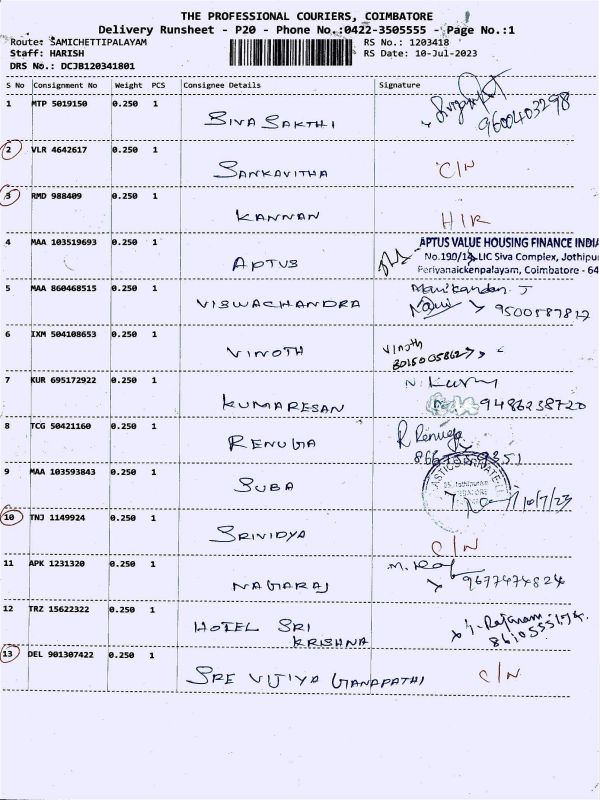 THE PROFESSIONAL COURIERS, COIMBATORE
Delivery Runsheet - P20 - Phone No.:0422-3505555 - Page No.:1
Route: SAMICHETTIPALAYAM
RS No.: 1203418
Staff: HARISH
RS Date: 10-Jul-2023
DRS No.: DCJB120341801
S No Consignment No Weight PCS Consignee Details Signature
1 MTP 5019150 0.250 1
SIVA SAKTHI
9600403298
2 VLR 4642617 0.250 1
SANKAVITHA C/N
3 RMD 988409 0.250 1
KANNAN H/R
4 MAA 103519693 0.250 1
APTUS
APTUS VALUE HOUSING FINANCE INDIA
No.190/1A, LIC Siva Complex, Jothipur
Periyanaickenpalayam, Coimbatore - 64
5 MAA 860468515 0.250 1
VISWACHANDRA
Manikandan. J
9500587812
6 IXM 504108653 0.250 1
VINOTH
Vinoth
8015005862
7 KUR 695172922 0.250 1
KUMARESAN
9486238720
8 TCG 50421160 0.250 1
RENUGA
R Renuga
9 MAA 103593843 0.250 1
SUBA
10/7/23
10 TNJ 1149924 0.250 1
SRIVIDYA C/N
11 APK 1231320 0.250 1
NAGARAJ
M. Raj
9677474824
12 TRZ 15622322 0.250 1
HOTEL SRI
KRISHNA
13 DEL 901307422 0.250 1
SRE VIJIYA GANAPATHI C/N